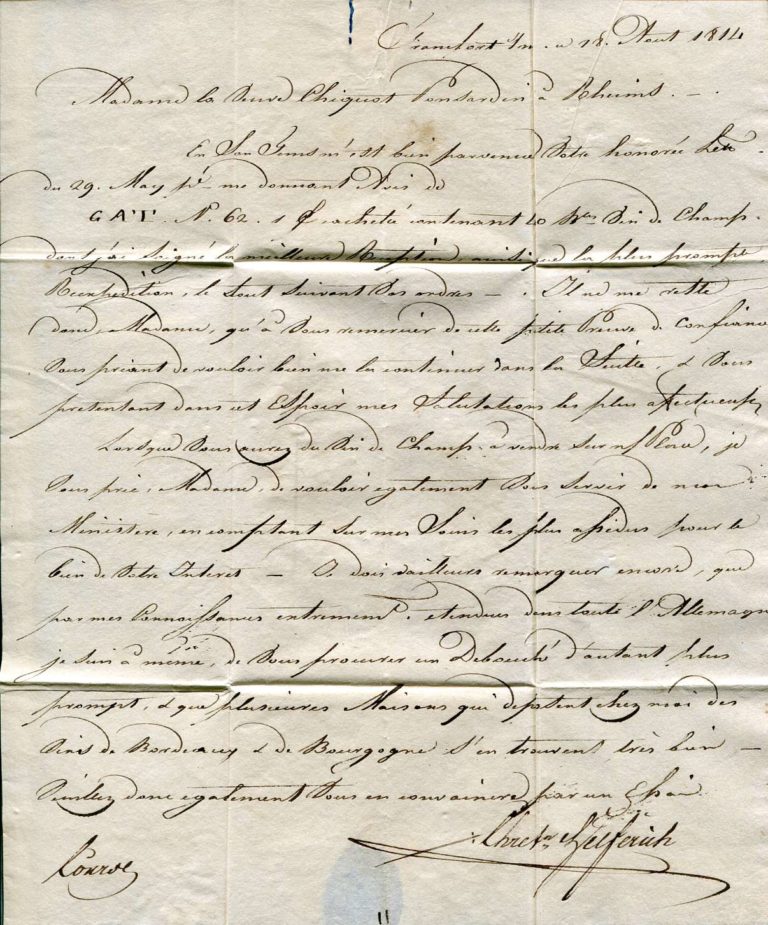 Francfort s/m. a 18. Aout 1814
Madame la Veuve Cliquot Ponsardin à Rheims. —.
En Son tems m'est bien parvenue Votre honorée Lettre
du 29. May pé. me donnant Avis de
GAT. N. 62. 1 acheté contenant 40 Vin de Champ.
dont j'ai Soigné la meilleure Reception ainsi que la plus prompte
Reexpédition, le tout Suivant Vos ordres —. Il ne me reste
donc, Madame, qu'à Vous remercier de cette petite Preuve de Confiance
Vous priant de vouloir bien me la continuer dans la Suitte, & Vous
presentant dans cet Espoir mes Salutations les plus afectueuses
Lorsque Vous aurez du Vin de Champ. à vendre sur n/ Place, je
Vous prie, Madame, de vouloir egalement Vous Servir de mon
Ministere, en comptant Sur mes Soins les plus assidus pour le
bien de Votre Interet — Je dois d'ailleurs remarquer encore, que
par mes Connoissances extremem. etendues dans toute l'Allemagne
je suis à même, de Vous procurer un Debouché d'autant plus
prompt, & que plusieures Maisons qui depotent chez moi des
Vins de Bordeaux & de Bourgogne S'en trouvent très bien —
Veuillez donc egalement Vous en convaincre par un Essai
Chretn Helferich